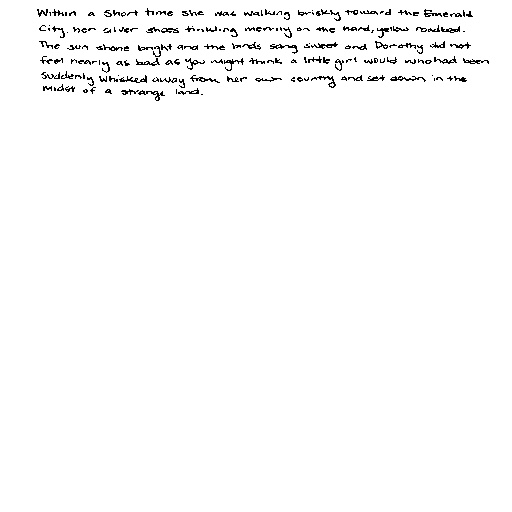 Within a short time she was walking briskly toward the Emerald
City, her silver shoes tinkling merrily on the hard, yellow roadbed.
The sun shone bright and the birds sang sweet and Dorothy did not
feel nearly as bad as you might think a little girl would who had been
suddenly whisked away from her own country and set down in the
midst of a strange land.